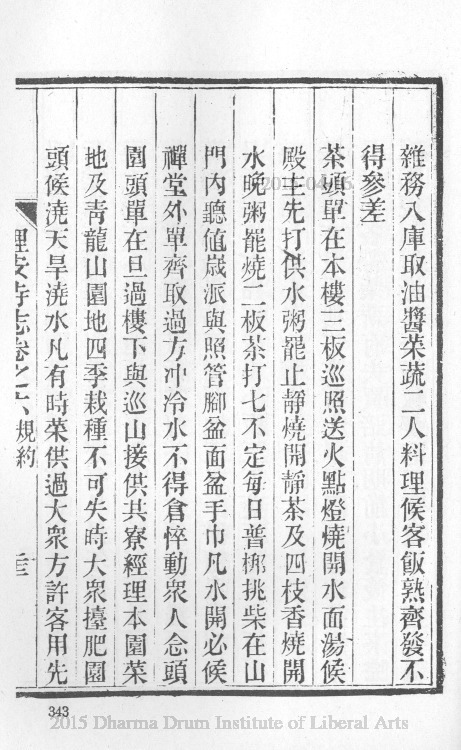 雜務入庫取油醬菜蔬二人料理候客飯熟齊發不
得參差
茶頭單在本樓三板巡照送火點燈燒開水面湯候
殿主先打供水粥罷止靜燒開靜茶及四枝香燒開
水晚粥罷燒二板茶打七不定每日普梆挑柴在山
門內聽值歲派與照管腳盆面盆手巾凡水開必候
禪堂外單齊取過方冲冷水不得倉悴動衆人念頭
園頭單在旦過樓下與巡山接供共寮經理本園菜
地及青龍山園地四季栽種不可失時大衆擡肥園
頭候澆天旱澆水凡有時菜供過大衆方許客用先
理安寺志卷之六 規約
343
2015 Dharma Drum Institute of Liberal Arts